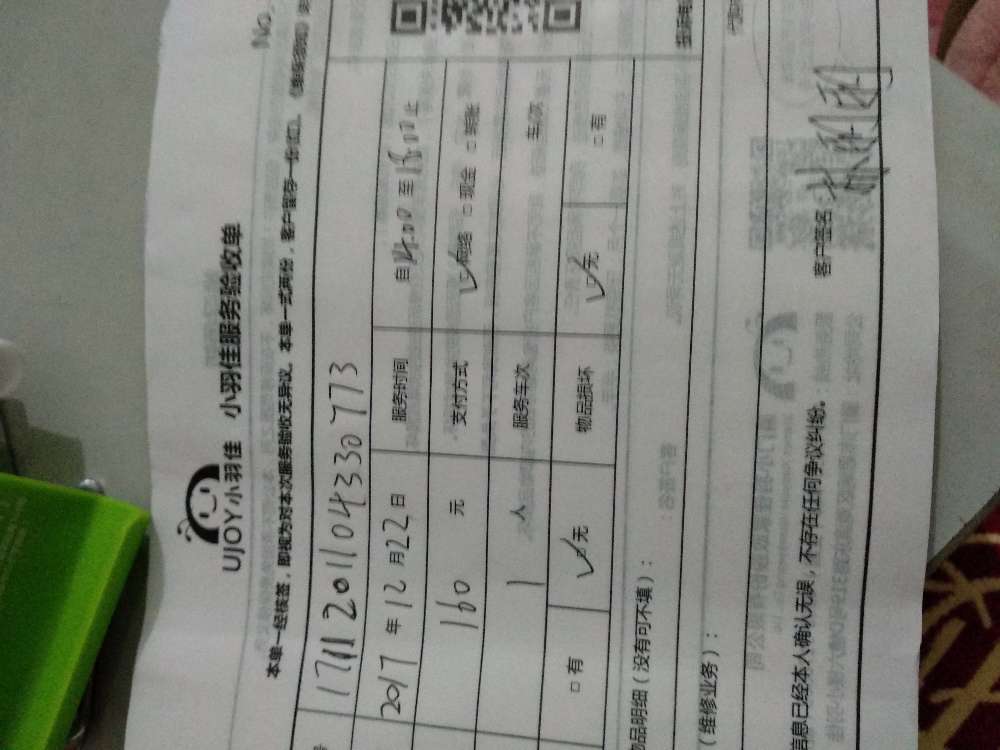 No.
UJOY小羽佳 小羽佳服务验收单
本单一经核签，即视为对本次服务验收无异议。本单一式两份，客户留存一份
号 1711201104330773
2017年12月22日 服务时间 自14:00至18:00止
160 元 支付方式 ☑网络 □现金 □转账
1 人 服务车次 车次
□有 ☑无 物品损坏 ☑无 □有
物品明细（没有可不填）：
（维修业务）：
信息已经本人确认无误，不存在任何争议纠纷。 客户签名